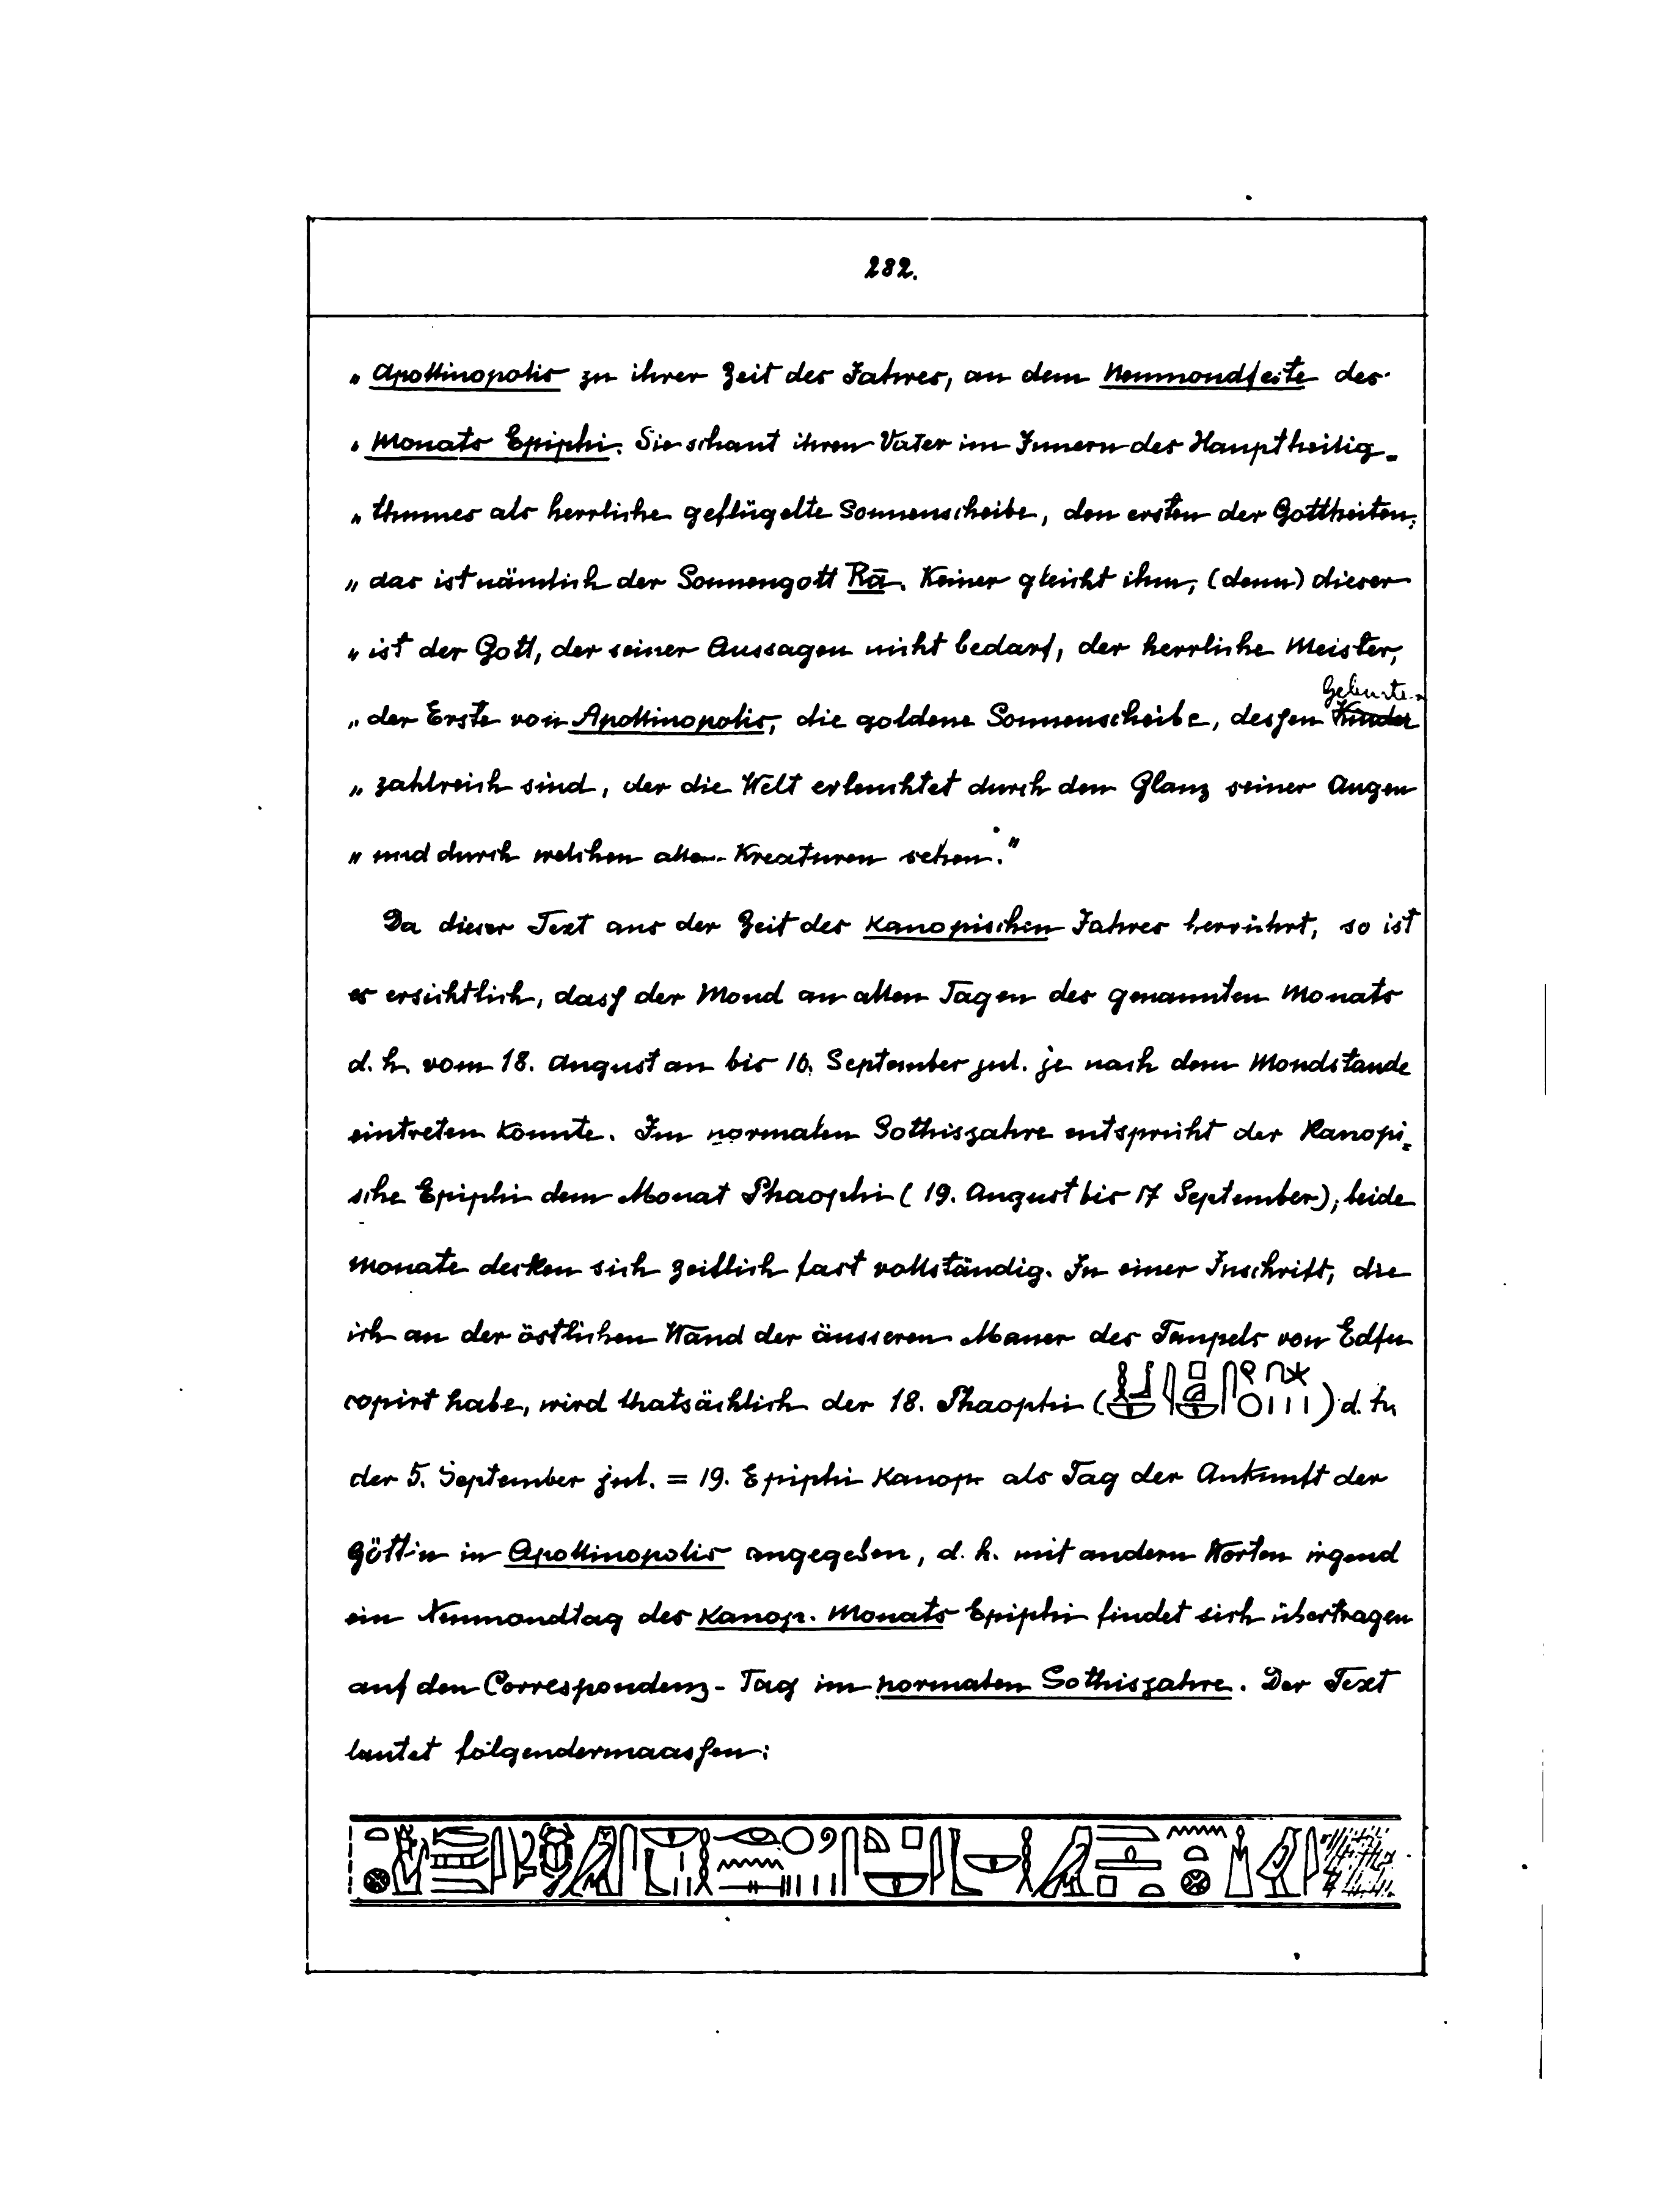 282.
„ Apollinopolis zu ihrer Zeit des Jahres, an dem Neumondfeste des
„ Monats Epiphi. Sie schaut ihren Vater im Innern des Hauptheilig-
„ thumes als herrliche geflügelte Sonnenscheibe, den ersten der Gottheiten,
„ das ist nämlich der Sonnengott Rā. Keiner gleicht ihm, (denn) dieser
„ ist der Gott, der seiner Aussagen nicht bedarf, der herrliche Meister,
„ der Erste von Apollinopolis, die goldene Sonnenscheibe, dessen Kinder
„ zahlreich sind, der die Welt erleuchtet durch den Glanz seiner Augen
„ und durch welchen alle Kreaturen sehen."
Da dieser Text aus der Zeit des Kanopischen Jahres herrührt, so ist
es ersichtlich, dass der Mond an allen Tagen des genannten Monats
d. h. vom 18. August an bis 16. September jul. je nach dem Mondstande
eintreten konnte. Im normalen Sothisjahre entspricht der Kanopi-
sche Epiphi dem Monat Phaophi (19. August bis 17 September); beide
Monate decken sich zeitlich fast vollständig. In einer Inschrift, die
ich an der östlichen Wand der äusseren Mauer des Tempels von Edfu
copirt habe, wird thatsächlich der 18. Phaophi ( ) d. h.
der 5. September jul. = 19. Epiphi Kanop. als Tag der Ankunft der
Göttin in Apollinopolis angegeben, d. h. mit andern Worten irgend
ein Neumondtag des Kanop. Monats Epiphi findet sich übertragen
auf den Correspondenz-Tag im normalen Sothisjahre. Der Text
lautet folgendermaassen: